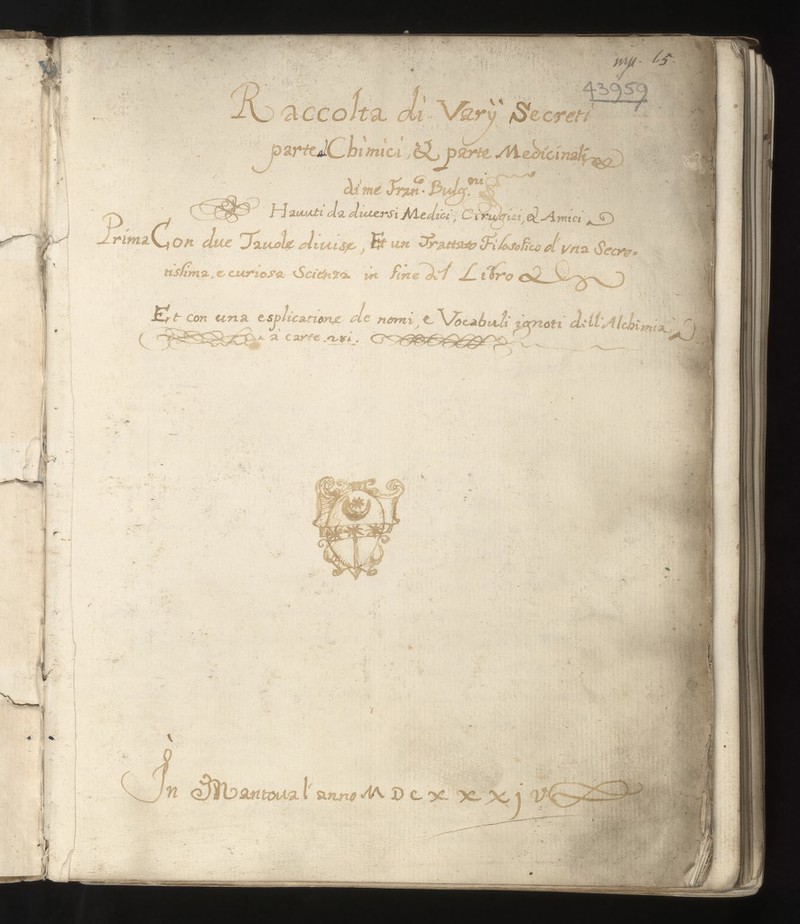 65
43959
Raccolta di Varÿ Secreti
parte Chimici, & parte Medicinali
di me Fran.co Bulg.ni
Hauuti da diuersi Medici, Cirugici, & Amici
Prima Con due Tauole diuise, Et un Trattato Filosofico d una Secre=
tissima, e curiosa Scienza in fine del Libro
Et con una esplicatione de nomi, e Vocabuli ignoti dell'Alchimia
à carte
In Mantoua l'anno MDCXXXjV